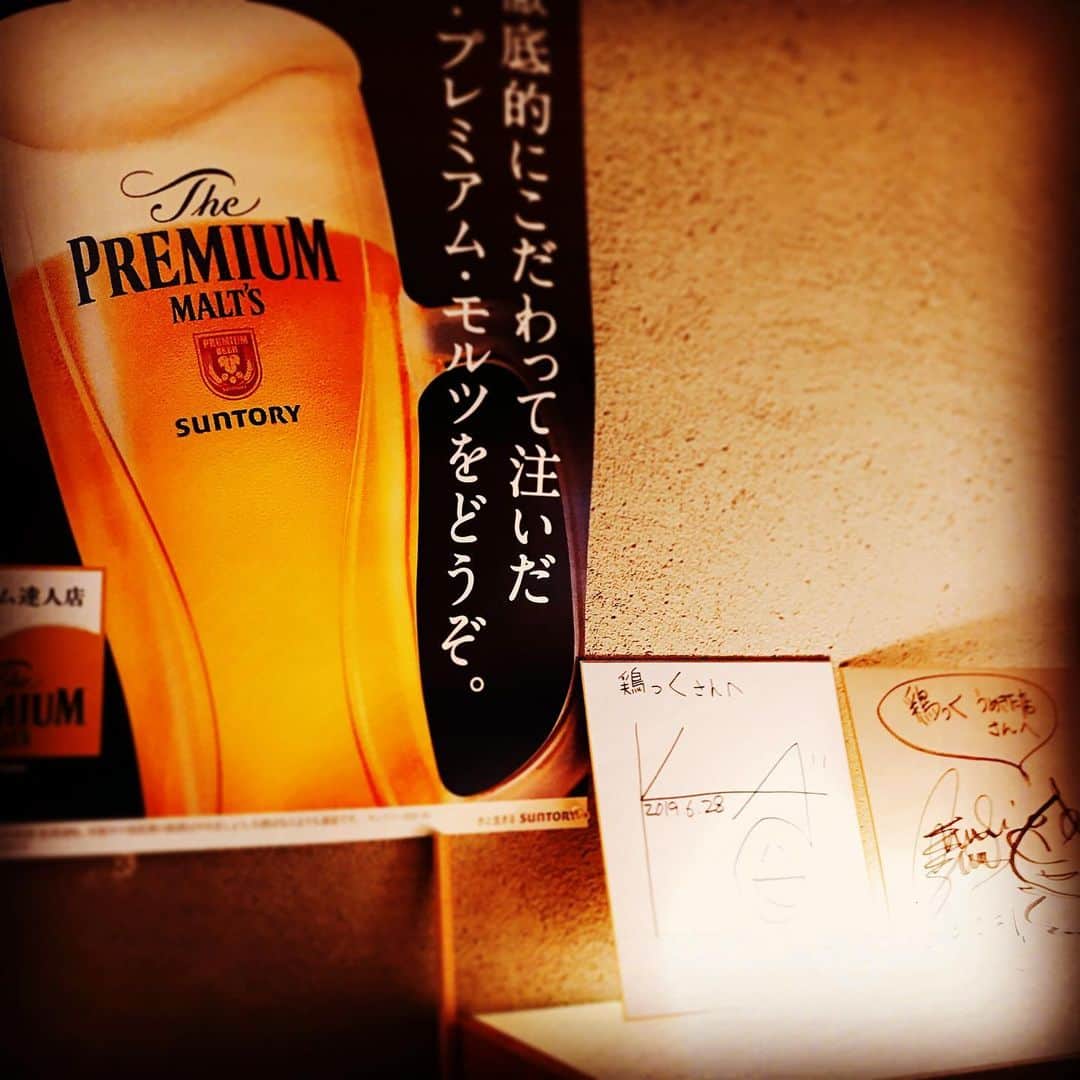 The
PREMIUM
MALT'S
PREMIUM
BEER
SUNTORY
徹底的にこだわって注いだ
・プレミアム・モルツをどうぞ。
ム達人店
The
MIUM
SUNTORY
鶏っくさんへ
2019.6.28
鶏っく うめだ店
さんへ